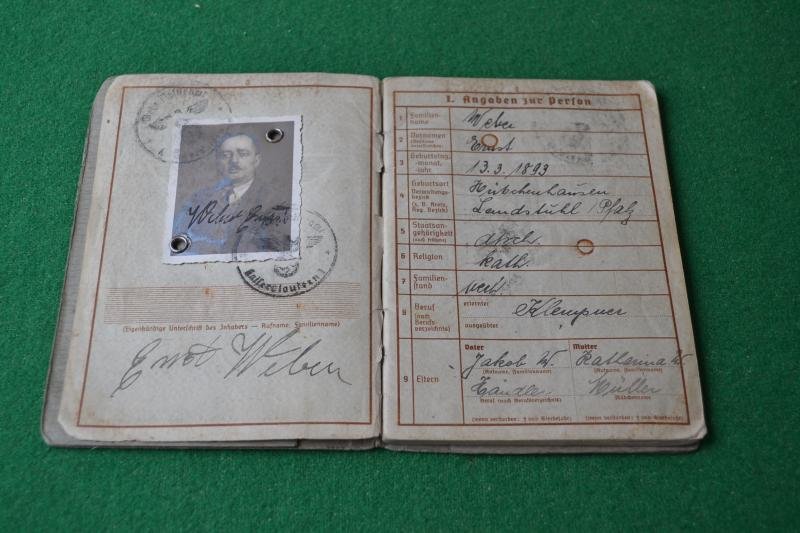 Weber Ernst
Kaiserslautern 1
(Eigenhändige Unterschrift des Inhabers — Rufname, Familienname)
Ernst Weber
I. Angaben zur Person
1 Familien-
name
Weber
2 Vornamen
(Rufname
unterstreichen)
Ernst
3 Geburtstag,
-monat,
-jahr
13.3.1893
4 Geburtsort
Verwaltungs-
bezirk
(z. B. Kreis,
Reg. Bezirk)
Hütschenhausen
Landstuhl/Pfalz
5 Staatsan-
gehörigkeit
(auch frühere)
dtsch.
6 Religion
kath.
7 Familien-
stand
verh.
8 Beruf
(nach
Berufs-
verzeichnis)
erlernter
Klempner
ausgeübter
9 Eltern
Vater
Jakob W.
(Rufname, Familienname)
Händler
Beruf (nach Berufsverzeichnis)
(wenn verstorben: † und Sterbejahr)
Mutter
Katharina W
(Rufname, Familienname)
Müller
Mädchenname
(wenn verstorben: † und Sterbejahr)